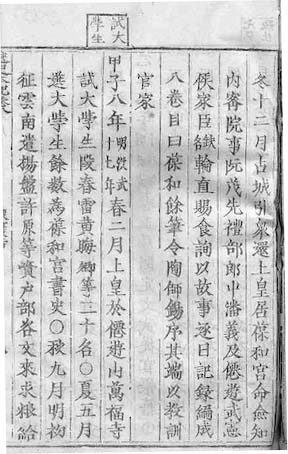 試大
學生
冬十二月占城引衆還上皇居葆和宮命僉知
內密院事阮茂先禮部郎中潘義及僊遊武
侯家臣缺輪直賜食詢以故事逐日記録編成
八卷目曰葆和餘筆令陶師錫序其端以教訓
官家
甲子八年明洪武十七年春二月上皇於僊遊山萬福寺
試大學生段春雷黃晦卿等三十名○夏五月
選大學生餘數為葆和宮書史○秋九月明初
征雲南遣楊盤許原等賫戶部咨文來求糧給